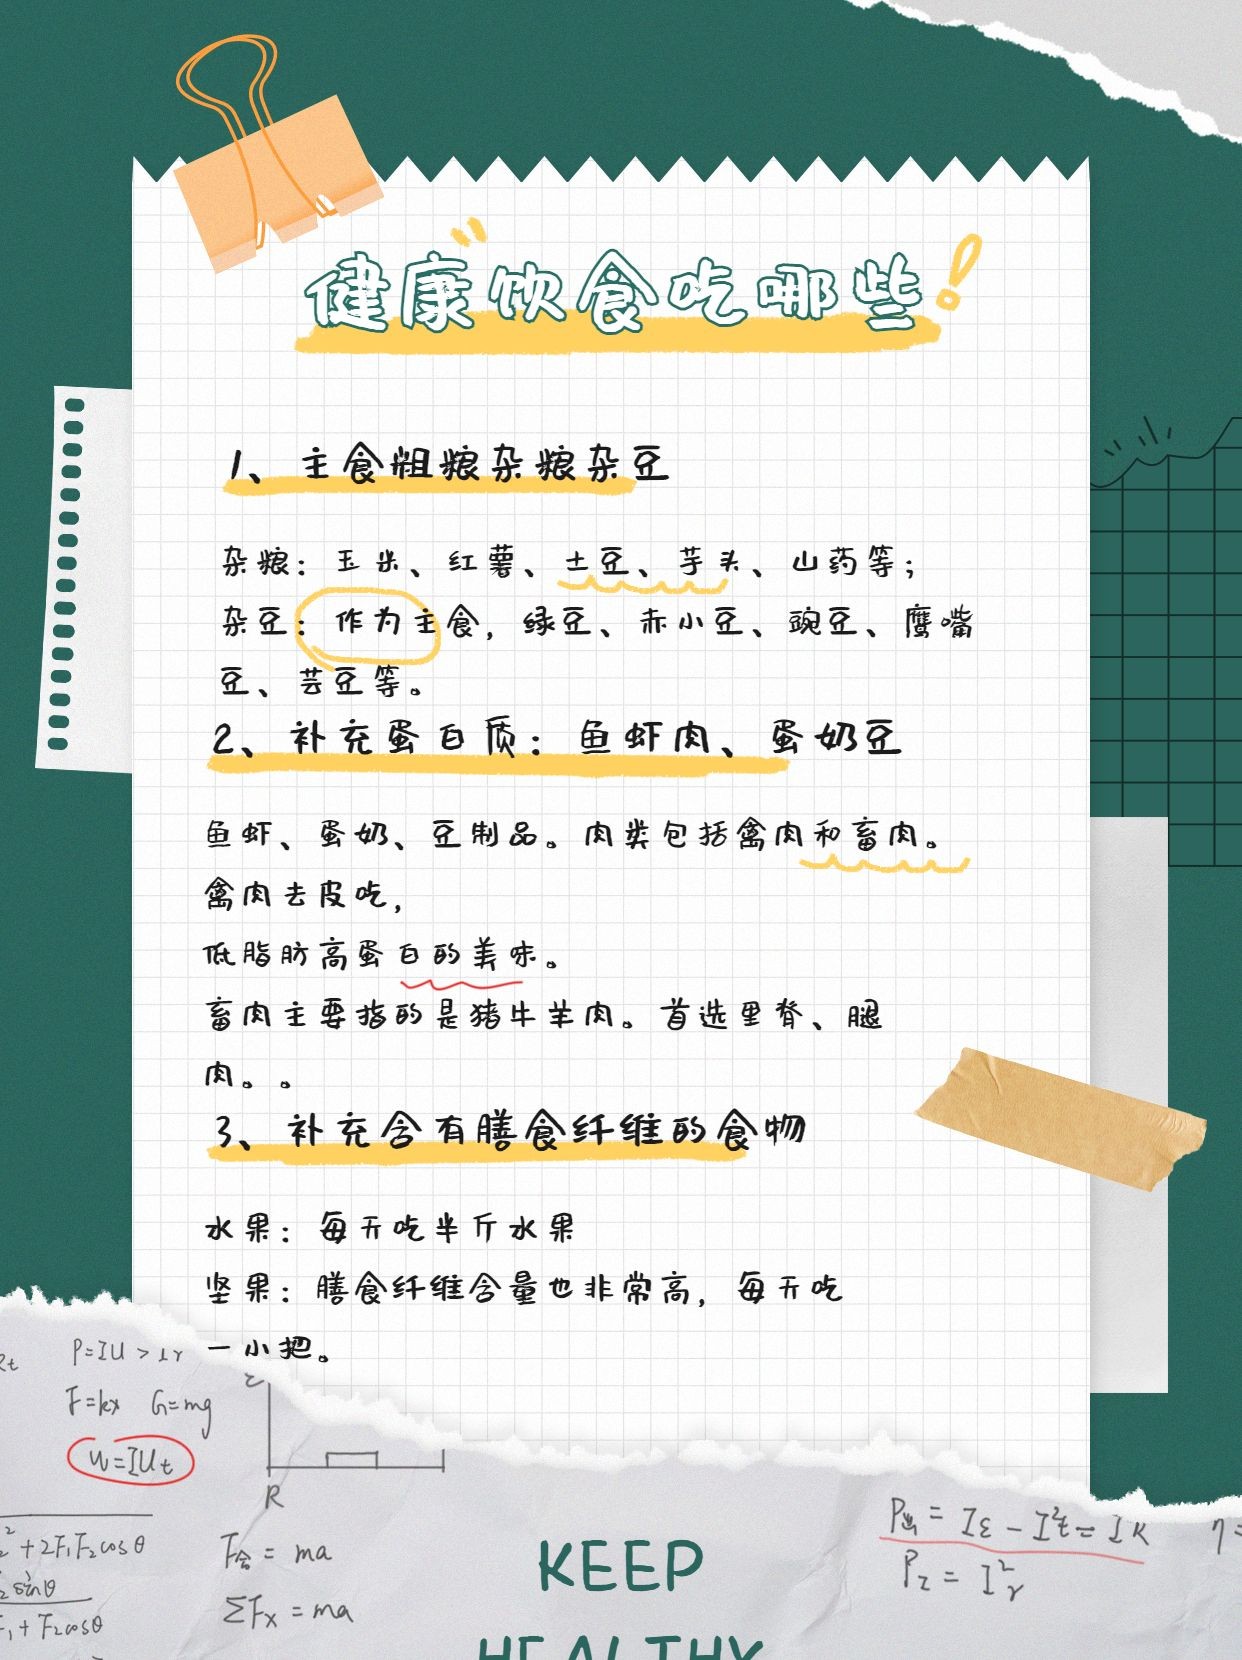 健康饮食吃哪些!
1、主食粗粮杂粮杂豆
杂粮：玉米、红薯、土豆、芋头、山药等；
杂豆：作为主食，绿豆、赤小豆、豌豆、鹰嘴
豆、芸豆等。
2、补充蛋白质：鱼虾肉、蛋奶豆
鱼虾、蛋奶、豆制品。肉类包括禽肉和畜肉。
禽肉去皮吃，
低脂肪高蛋白的美味。
畜肉主要指的是猪牛羊肉。首选里脊、腿
肉。。
3、补充含有膳食纤维的食物
水果：每天吃半斤水果
坚果：膳食纤维含量也非常高，每天吃
一小把。
P=IU > Ir
F=kx G=mg
W=IUt
R
+2F₁F₂cosθ
F合 = ma
sinθ
+ F₂cosθ
ΣFx = ma
P出 = Iε - I²t = IR
η=
P = I²r
KEEP
HEALTHY